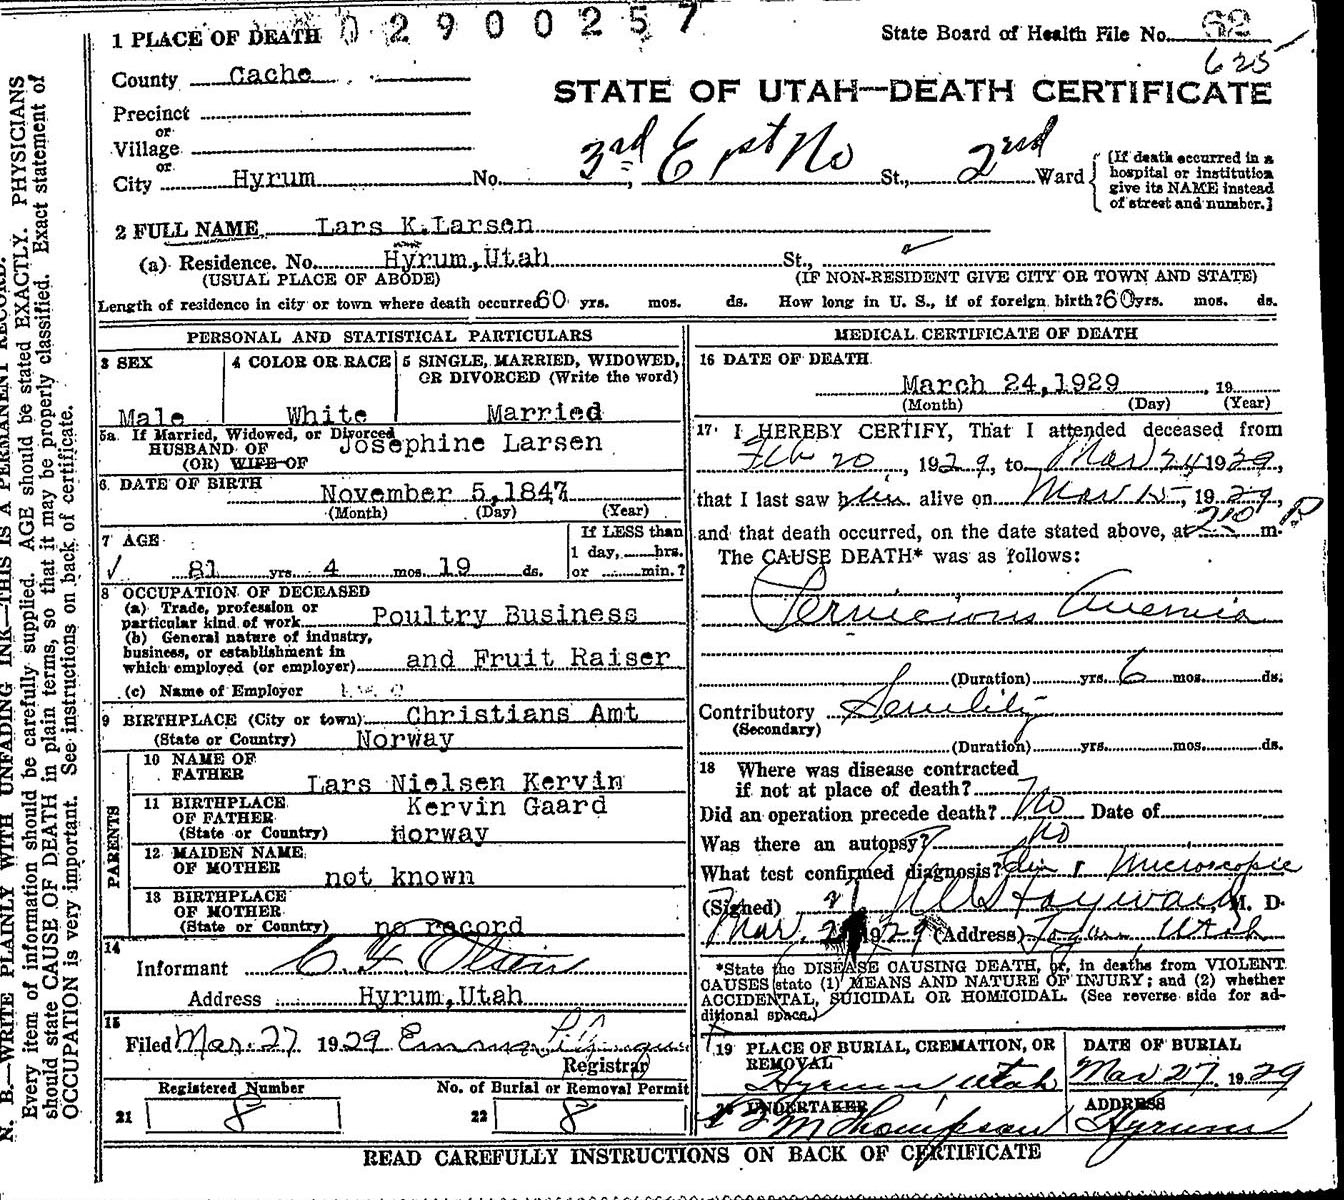 02900257
1 PLACE OF DEATH
State Board of Health File No. 62
625
County Cache
STATE OF UTAH—DEATH CERTIFICATE
Precinct
or
Village
or
City Hyrum No. 3rd E 1st No St., 2nd Ward
{If death occurred in a hospital or institution give its NAME instead of street and number.}
2 FULL NAME Lars K. Larsen
(a) Residence. No. Hyrum, Utah St.,
(USUAL PLACE OF ABODE) (IF NON-RESIDENT GIVE CITY OR TOWN AND STATE)
Length of residence in city or town where death occurred 60 yrs. mos. ds. How long in U. S., if of foreign birth? 60 yrs. mos. ds.
PERSONAL AND STATISTICAL PARTICULARS
3 SEX
Male
4 COLOR OR RACE
White
5 SINGLE, MARRIED, WIDOWED, OR DIVORCED (Write the word)
Married
5a If Married, Widowed, or Divorced
HUSBAND OF Josephine Larsen
(OR) WIFE OF
6 DATE OF BIRTH
November 5, 1847
(Month) (Day) (Year)
7 AGE
81 yrs. 4 mos. 19 ds.
If LESS than
1 day, hrs.
or min.?
8 OCCUPATION OF DECEASED
(a) Trade, profession or
particular kind of work Poultry Business
(b) General nature of industry,
business, or establishment in
which employed (or employer) and Fruit Raiser
(c) Name of Employer
9 BIRTHPLACE (City or town) Christians Amt
(State or Country) Norway
PARENTS
10 NAME OF
FATHER Lars Nielsen Kervin
11 BIRTHPLACE Kervin Gaard
OF FATHER
(State or Country) Norway
12 MAIDEN NAME
OF MOTHER not known
13 BIRTHPLACE
OF MOTHER
(State or Country) no record
14
Informant C. F. Olsen
Address Hyrum, Utah
15
Filed Mar. 27 1929 Emma
Registrar
Registered Number
21 8
No. of Burial or Removal Permit
22 8
MEDICAL CERTIFICATE OF DEATH
16 DATE OF DEATH
March 24, 1929, 19
(Month) (Day) (Year)
17 I HEREBY CERTIFY, That I attended deceased from
Feb 20, 1929, to Mar 24 1929,
that I last saw him alive on Mar 15, 1929,
and that death occurred, on the date stated above, at 210 P m.
The CAUSE DEATH* was as follows:
Pernicious Anemia
(Duration) yrs. 6 mos. ds.
Contributory Senility
(Secondary)
(Duration) yrs. mos. ds.
18 Where was disease contracted
if not at place of death?
Did an operation precede death? No Date of
Was there an autopsy? No
What test confirmed diagnosis? Microscopic
(Signed) Hayward, M. D.
Mar. 1929 (Address) Logan, Utah
*State the DISEASE CAUSING DEATH, or, in deaths from VIOLENT
CAUSES state (1) MEANS AND NATURE OF INJURY; and (2) whether
ACCIDENTAL, SUICIDAL OR HOMICIDAL. (See reverse side for ad-
ditional space.)
19 PLACE OF BURIAL, CREMATION, OR
REMOVAL
Hyrum Utah
DATE OF BURIAL
Mar 27, 1929
20 UNDERTAKER
M Thompson
ADDRESS
Hyrum
READ CAREFULLY INSTRUCTIONS ON BACK OF CERTIFICATE
N. B.—WRITE PLAINLY WITH UNFADING INK—THIS IS A PERMANENT RECORD.
Every item of information should be carefully supplied. AGE should be stated EXACTLY. PHYSICIANS
should state CAUSE OF DEATH in plain terms, so that it may be properly classified. Exact statement of
OCCUPATION is very important. See instructions on back of certificate.